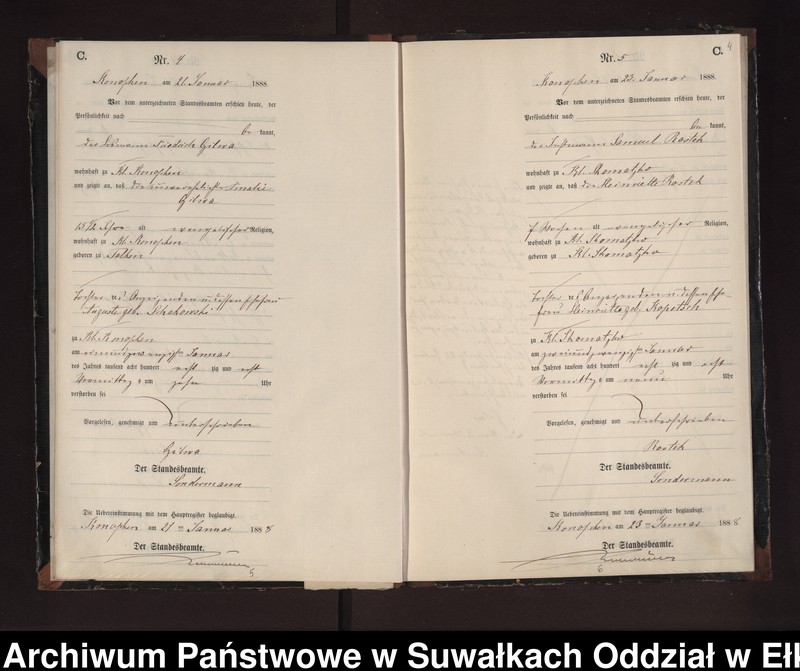 C.
Nr. 4
Konopken am 21. Januar 1888.
Vor dem unterzeichneten Standesbeamten erschien heute, der
Persönlichkeit nach
be kannt,
der Losmann Friedrich Gitwa
wohnhaft zu Kl. Konopken
und zeigte an, daß die unverehelichte Amalie
Gitwa
13 1/2 Jahre alt evangelischer Religion,
wohnhaft zu Kl. Konopken
geboren zu
Tochter des Anzeigenden u. dessen Ehefrau
Auguste geb.
zu Kl. Konopken
am einundzwanzigsten Januar
des Jahres tausend acht hundert acht zig und acht
Vormittags um zehn Uhr
verstorben sei
Vorgelesen, genehmigt und unterschrieben
Gitwa
Der Standesbeamte.
Sondermann
Die Uebereinstimmung mit dem Hauptregister beglaubigt.
Konopken am 21 ten Januar 1888
Der Standesbeamte.
5
C.
4
Nr. 5
Konopken am 23. Januar 1888.
Vor dem unterzeichneten Standesbeamten erschien heute, der
Persönlichkeit nach
be kannt,
der Samuel Rostek
wohnhaft zu Kl. Skomatzko
und zeigte an, daß die Heinriette Rostek
Wochen alt evangelischer Religion,
wohnhaft zu Kl. Skomatzko
geboren zu Kl. Skomatzko
Tochter des Anzeigenden u. dessen Ehe-
frau Heinriette geb. Kopetsch
zu Kl. Skomatzko
am zweiundzwanzigsten Januar
des Jahres tausend acht hundert acht zig und acht
Vormittags um neun Uhr
verstorben sei
Vorgelesen, genehmigt und unterschrieben
Rostek
Der Standesbeamte.
Sondermann
Die Uebereinstimmung mit dem Hauptregister beglaubigt.
Konopken am 23 ten Januar 1888
Der Standesbeamte.
6
Archiwum Państwowe w Suwałkach Oddział w Ełk